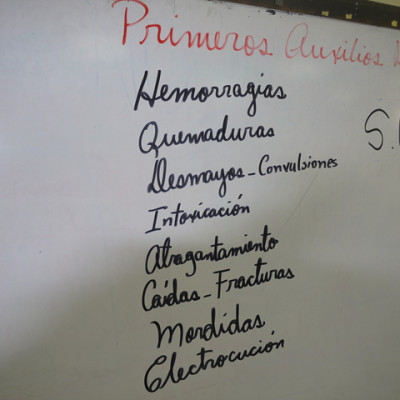 Primeros Auxilios
Hemorragias
Quemaduras
Desmayos - Convulsiones
Intoxicación
Atragantamiento
Caídas - Fracturas
Mordidas
Electrocución
S.